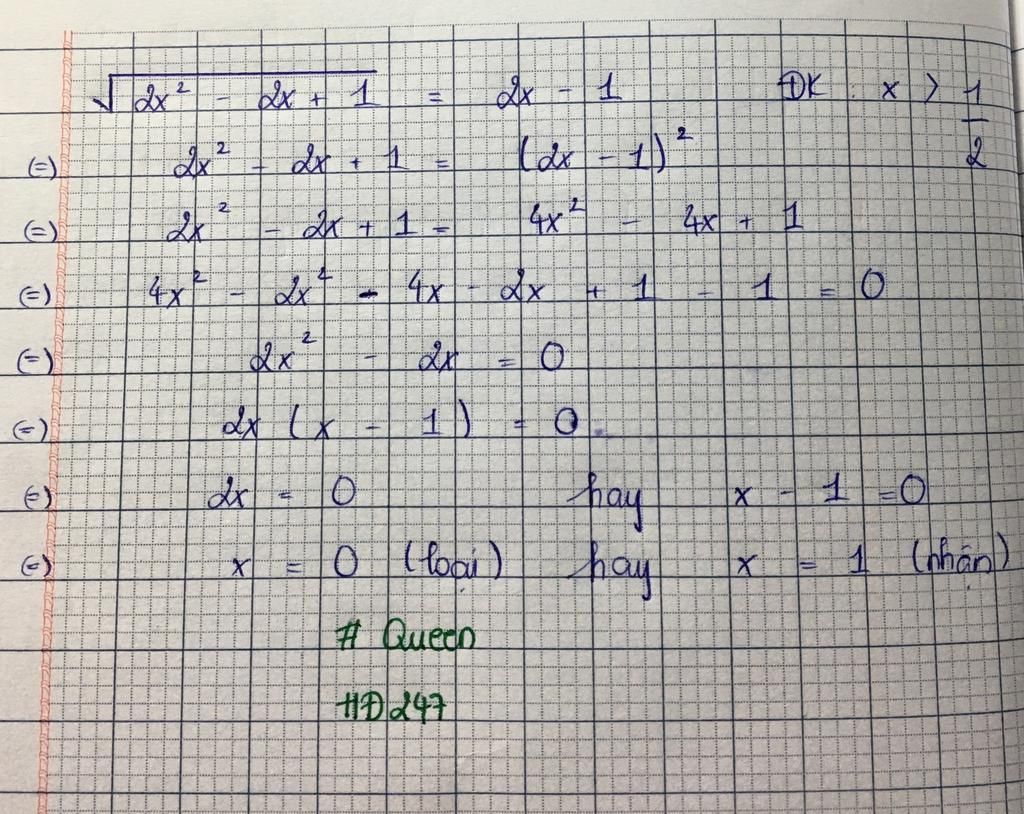 √(2x² - 2x + 1) = 2x - 1 ĐK : x > 1/2
(=) 2x² - 2x + 1 = (2x - 1)²
(=) 2x² - 2x + 1 = 4x² - 4x + 1
(=) 4x² - 2x² - 4x - 2x + 1 - 1 = 0
(=) 2x² - 2x = 0
(=) 2x (x - 1) = 0.
(=) 2x = 0 hay x - 1 = 0
(=) x = 0 (loại) hay x = 1 (nhận)
# Queen
HĐ247